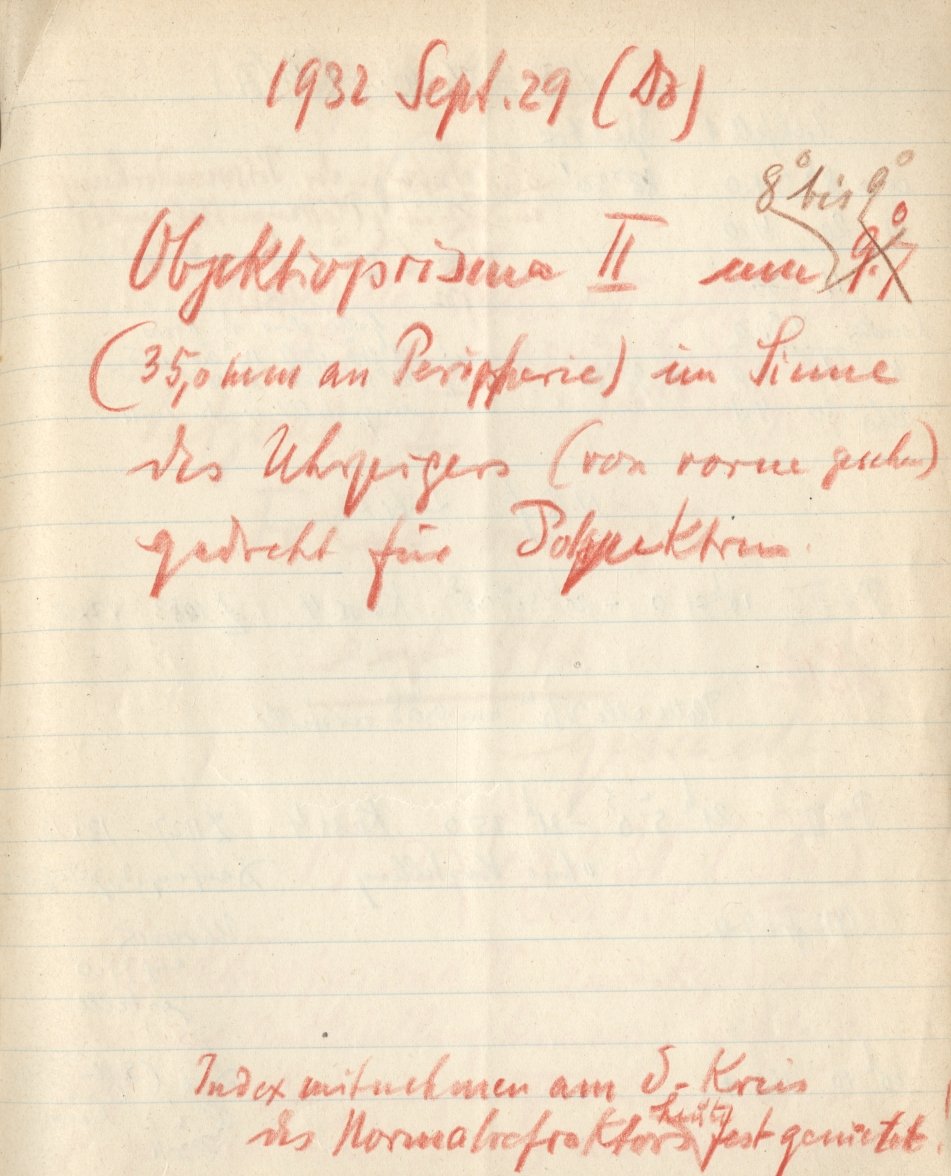 1932 Sept. 29 (Dz)
8° bis 9°
Objektivprisma II um 9.7°
(35,0 mm an Peripherie) im Sinne
des Uhrzeigers (von vorne gesehen)
gedreht für Polspektrum.
Index mitnehmen am δ-Kreis
heute
des Normalrefraktors festgenietet.